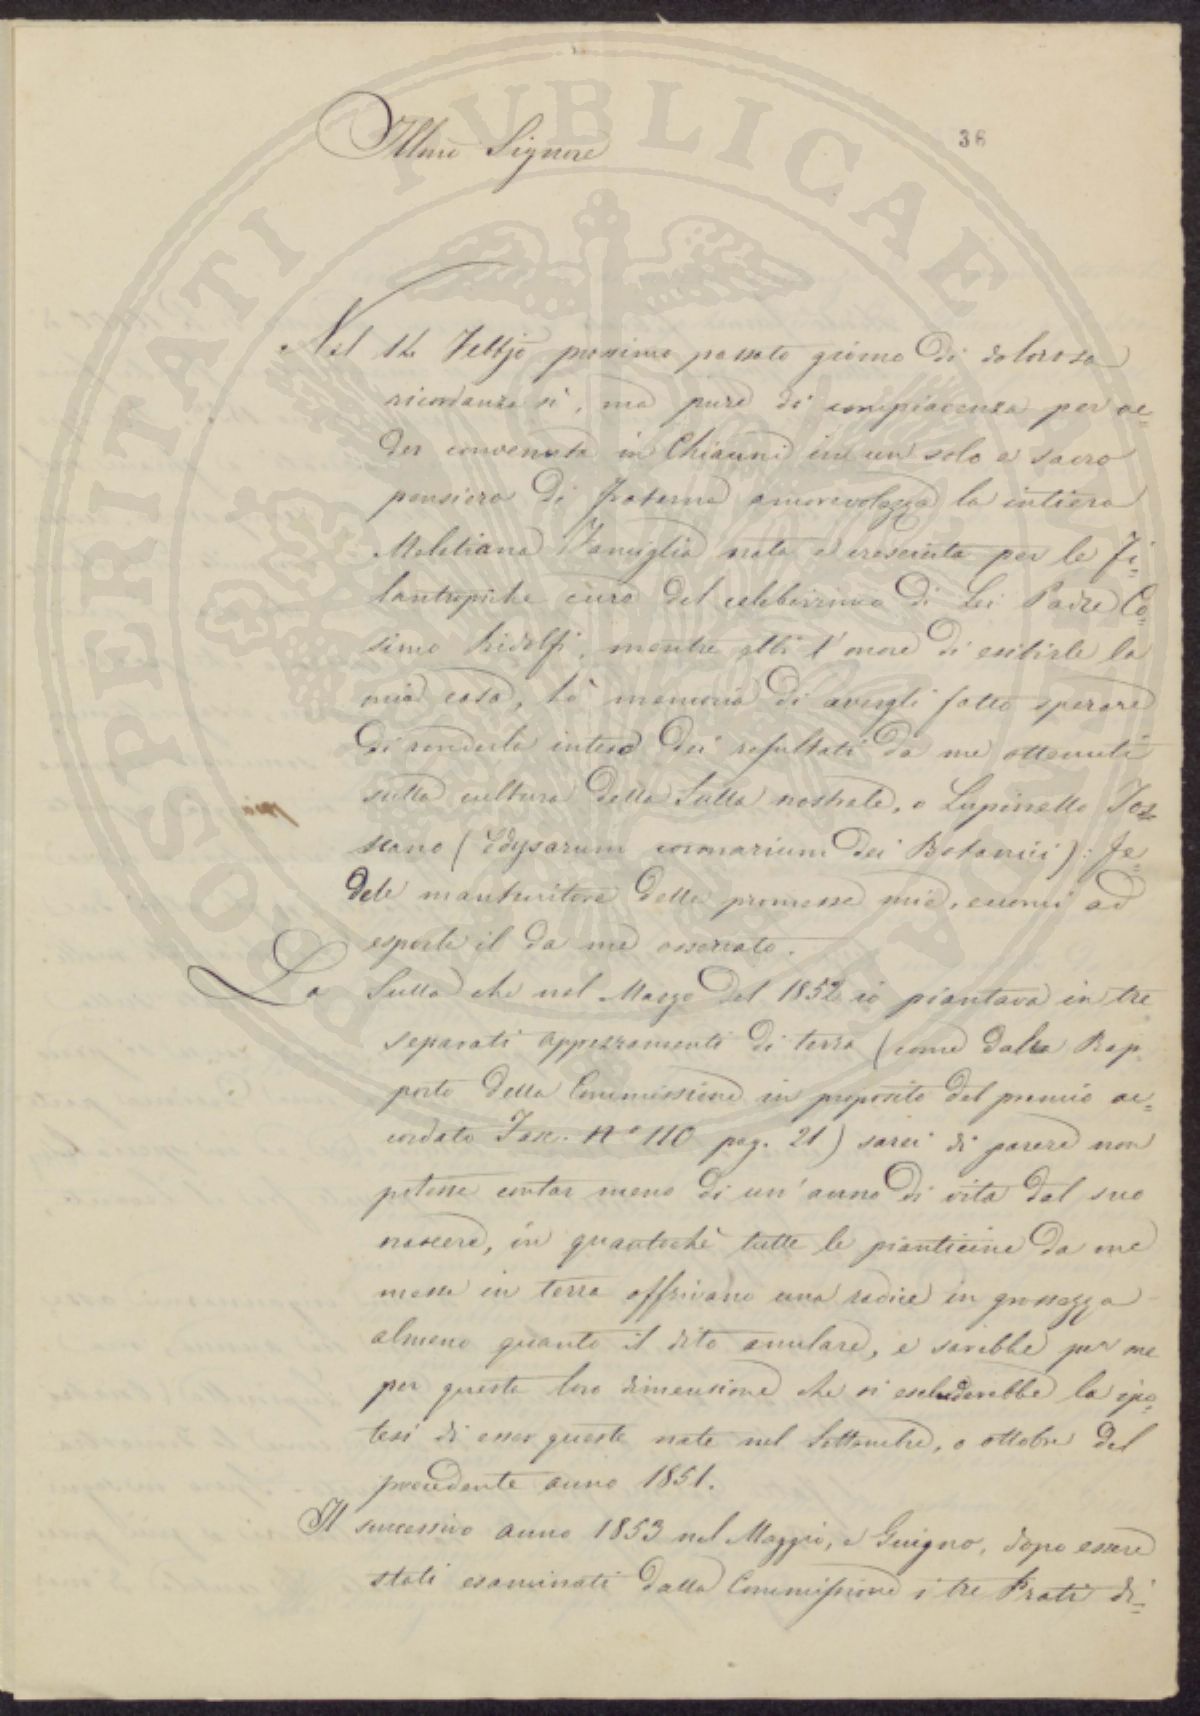 Illmo Signore
38
Nel 14 Febbjo prossimo passato giorno di dolorosa
ricordanza sì, ma pure di compiacenza per ve=
der convenuta in Chianni in un solo e sacro
pensiero di fraterna amorevolezza la intiera
Meletiana Famiglia nata e cresciuta per le Fi=
lantropiche cure del celeberrimo di Lei Padre Co=
simo Ridolfi, mentre ebbi l'onore di esibirle la
mia casa, hò memoria di avergli fatto sperare
di renderla inteso dei resultati da me ottenuti
sulla cultura della Sulla nostrale, o Lupinello Tos=
scano (Edysarum coronarium dei Botanici): fe=
dele mantenitore delle promesse mie, eccomi ad
esporle il da me osservato.
La Sulla che nel Marzo del 1852 io piantava in tre
separati appezzamenti di terra (come dalla Rap=
porto della Commissione in proposito del premio ac=
cordato Fasc. N° 110 pag. 21) sarei di parere non
potesse contar meno di un'anno di vita dal suo
nascere, in quantochè tutte le pianticine da me
messe in terra offrivano una radice in grossezza
almeno quanto il dito anulare, e sarebbe per me
per questa loro dimensione che si escluderebbe la ipo=
tesi di esser queste nate nel Settembre, o ottobre del
precedente anno 1851.
Il successivo anno 1853 nel Maggio, e Giugno, dopo essere
stati esaminati dalla Commissione i tre Prati di=